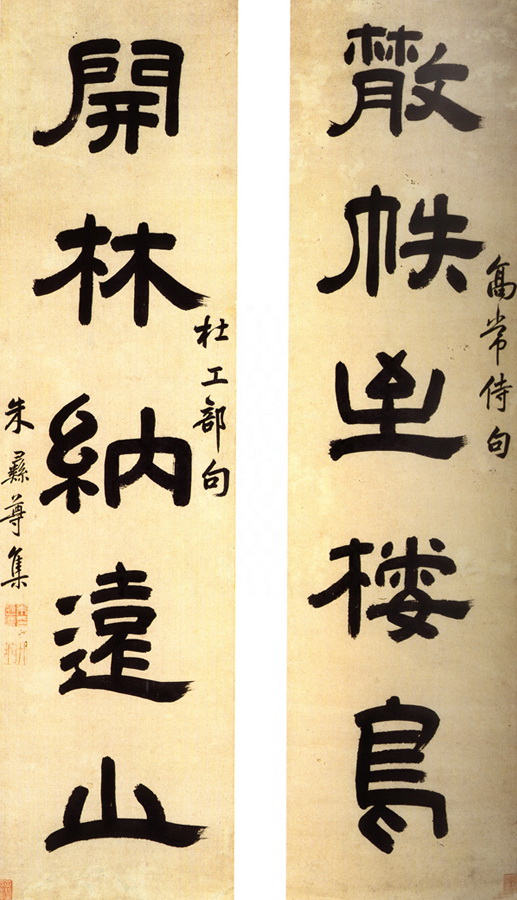 高常侍句
散帙至棲鳥
杜工部句
開林納遠山
朱彝尊集